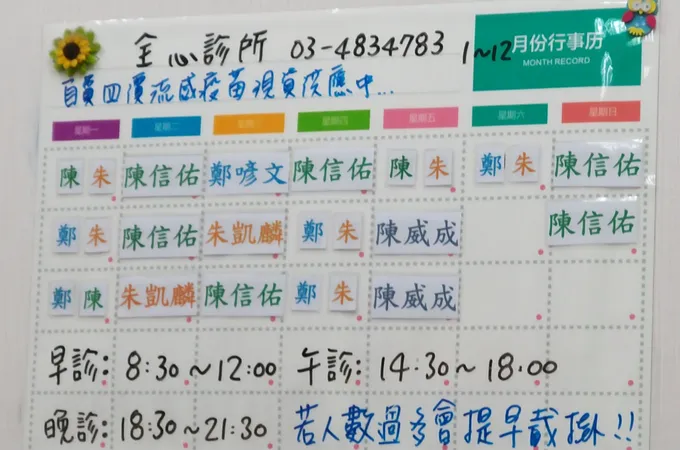 全心診所 03-4834783 1~12月份行事历
MONTH RECORD
自費四價流感疫苗現貨供應中...
星期一 星期二 星期三 星期四 星期五 星期六 星期日
陳 朱 陳信佑 鄭喭文 陳信佑 陳 朱 鄭 朱 陳信佑
鄭 朱 陳信佑 朱凱麟 鄭 朱 陳威成 陳信佑
鄭 陳 朱凱麟 陳信佑 鄭 朱 陳威成
早診: 8:30~12:00 午診: 14:30~18:00
晚診: 18:30~21:30 若人數過多會提早截掛!!